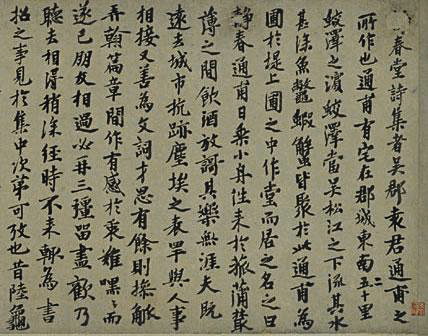 春堂詩集者吳郡袁君通甫之
所作也通甫有宅在郡城東南五十里
蛟澤之濱蛟澤當吳松江之下流其水
甚深魚鼈蝦蟹皆聚於此通甫為
圃於堤上圃之中作堂而居之名之曰
靜春通甫日乘小舟往來於菰蒲葭
薄之間飲酒放謌其樂無涯夫既
遠去城市抗跡塵埃之表罕與人事
相接又善為文詞才思有餘則操觚
弄翰篇章間作有感於衷雖而
遂已朋友相過必再三彊留盡歡乃
聽去相得稍深經時不來輒為書
招之事見於集中次第可攷也昔陸龜